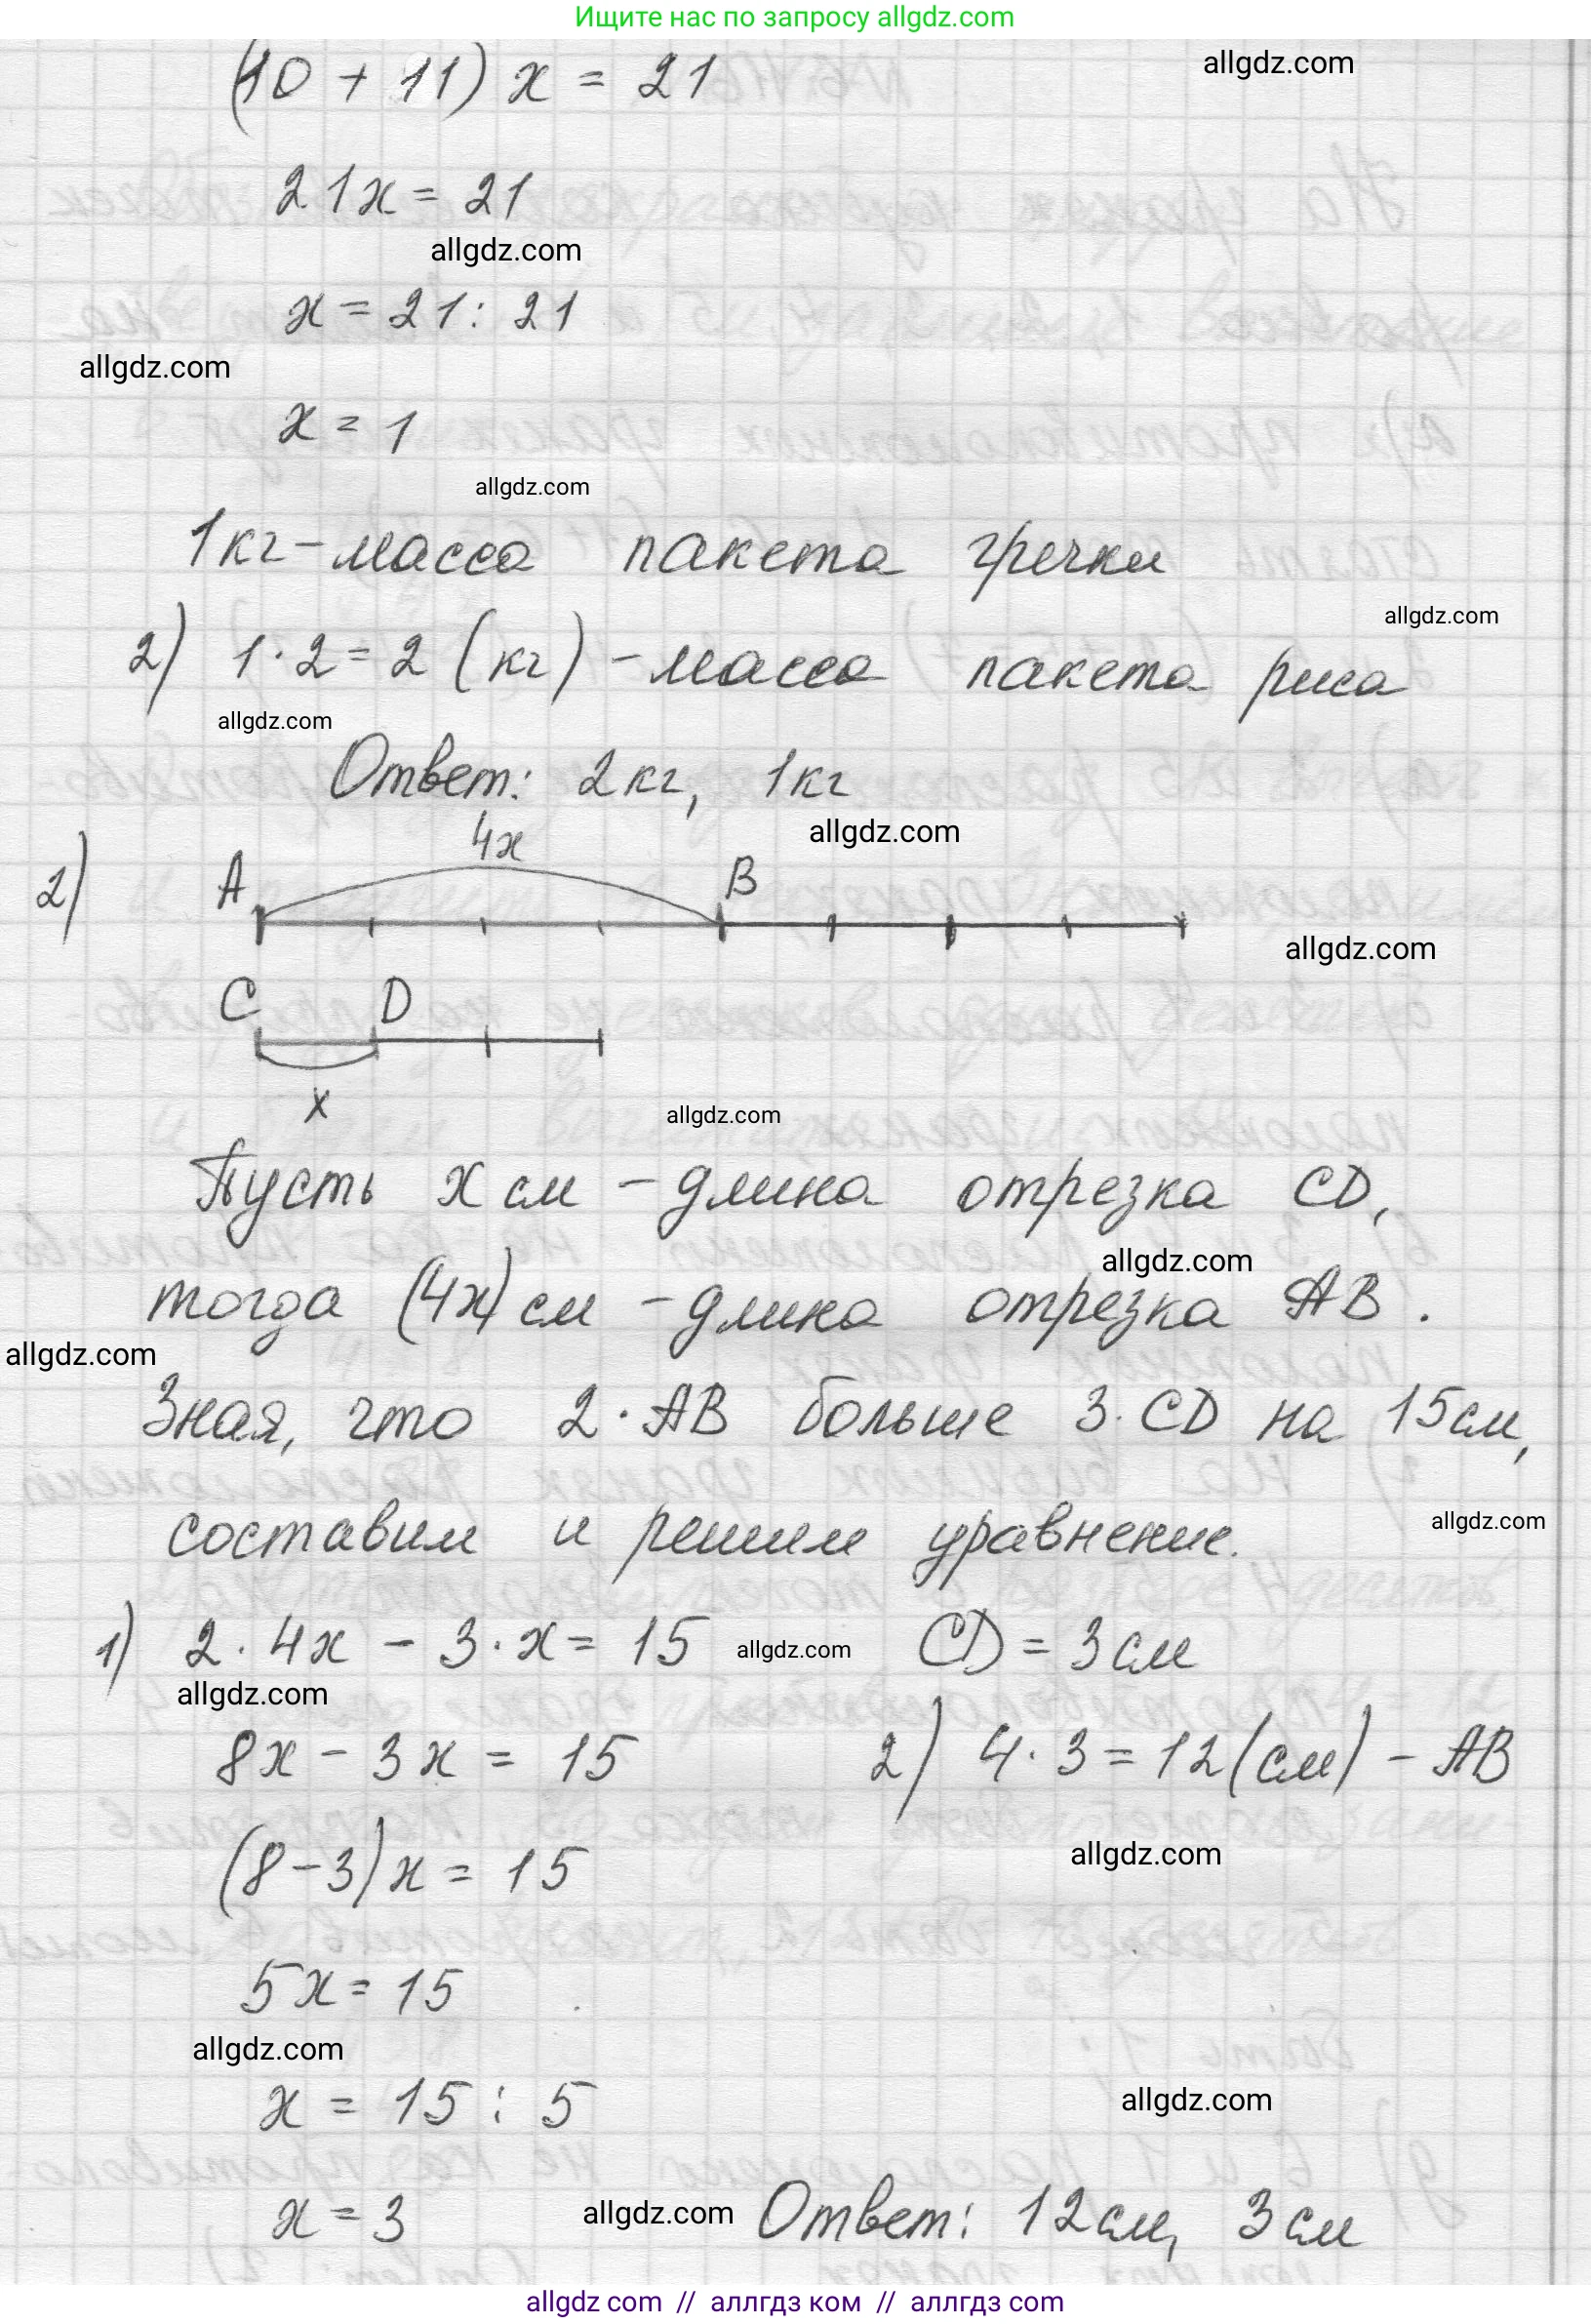 Ищите нас по запросу allgdz.com
(10 + 11) x = 21
allgdz.com
21x = 21
allgdz.com
x = 21 : 21
allgdz.com
x = 1
allgdz.com
1кг - масса пакета гречки
allgdz.com
2) 1 · 2 = 2 (кг) - масса пакета риса
allgdz.com
Ответ: 2кг, 1кг
allgdz.com
4x
2) A B
allgdz.com
C D
x
allgdz.com
Пусть x см - длина отрезка CD,
allgdz.com
тогда (4x) см - длина отрезка AB.
allgdz.com
Зная, что 2 · AB больше 3 · CD на 15см,
allgdz.com
составим и решим уравнение.
1) 2 · 4x - 3 · x = 15 allgdz.com CD = 3 см
allgdz.com
8x - 3x = 15 2) 4 · 3 = 12 (см) - AB
allgdz.com
(8 - 3) x = 15
5x = 15
allgdz.com
x = 15 : 5
allgdz.com
x = 3 allgdz.com Ответ: 12см, 3см
allgdz com // аллгдз ком // аллгдз com